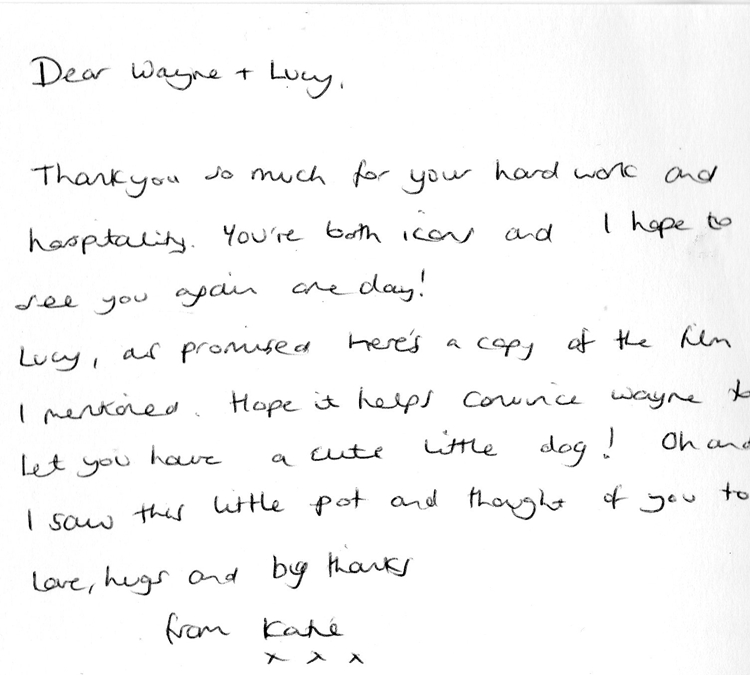 Dear Wayne + Lucy,
Thankyou so much for your hard work and
hospitality. You're both icons and I hope to
see you again one day!
Lucy, as promised here's a copy of the film
I mentioned. Hope it helps convince Wayne to
let you have a cute little dog! Oh and
I saw this little pot and thought of you to
love, hugs and big thanks
from Katie
x x x